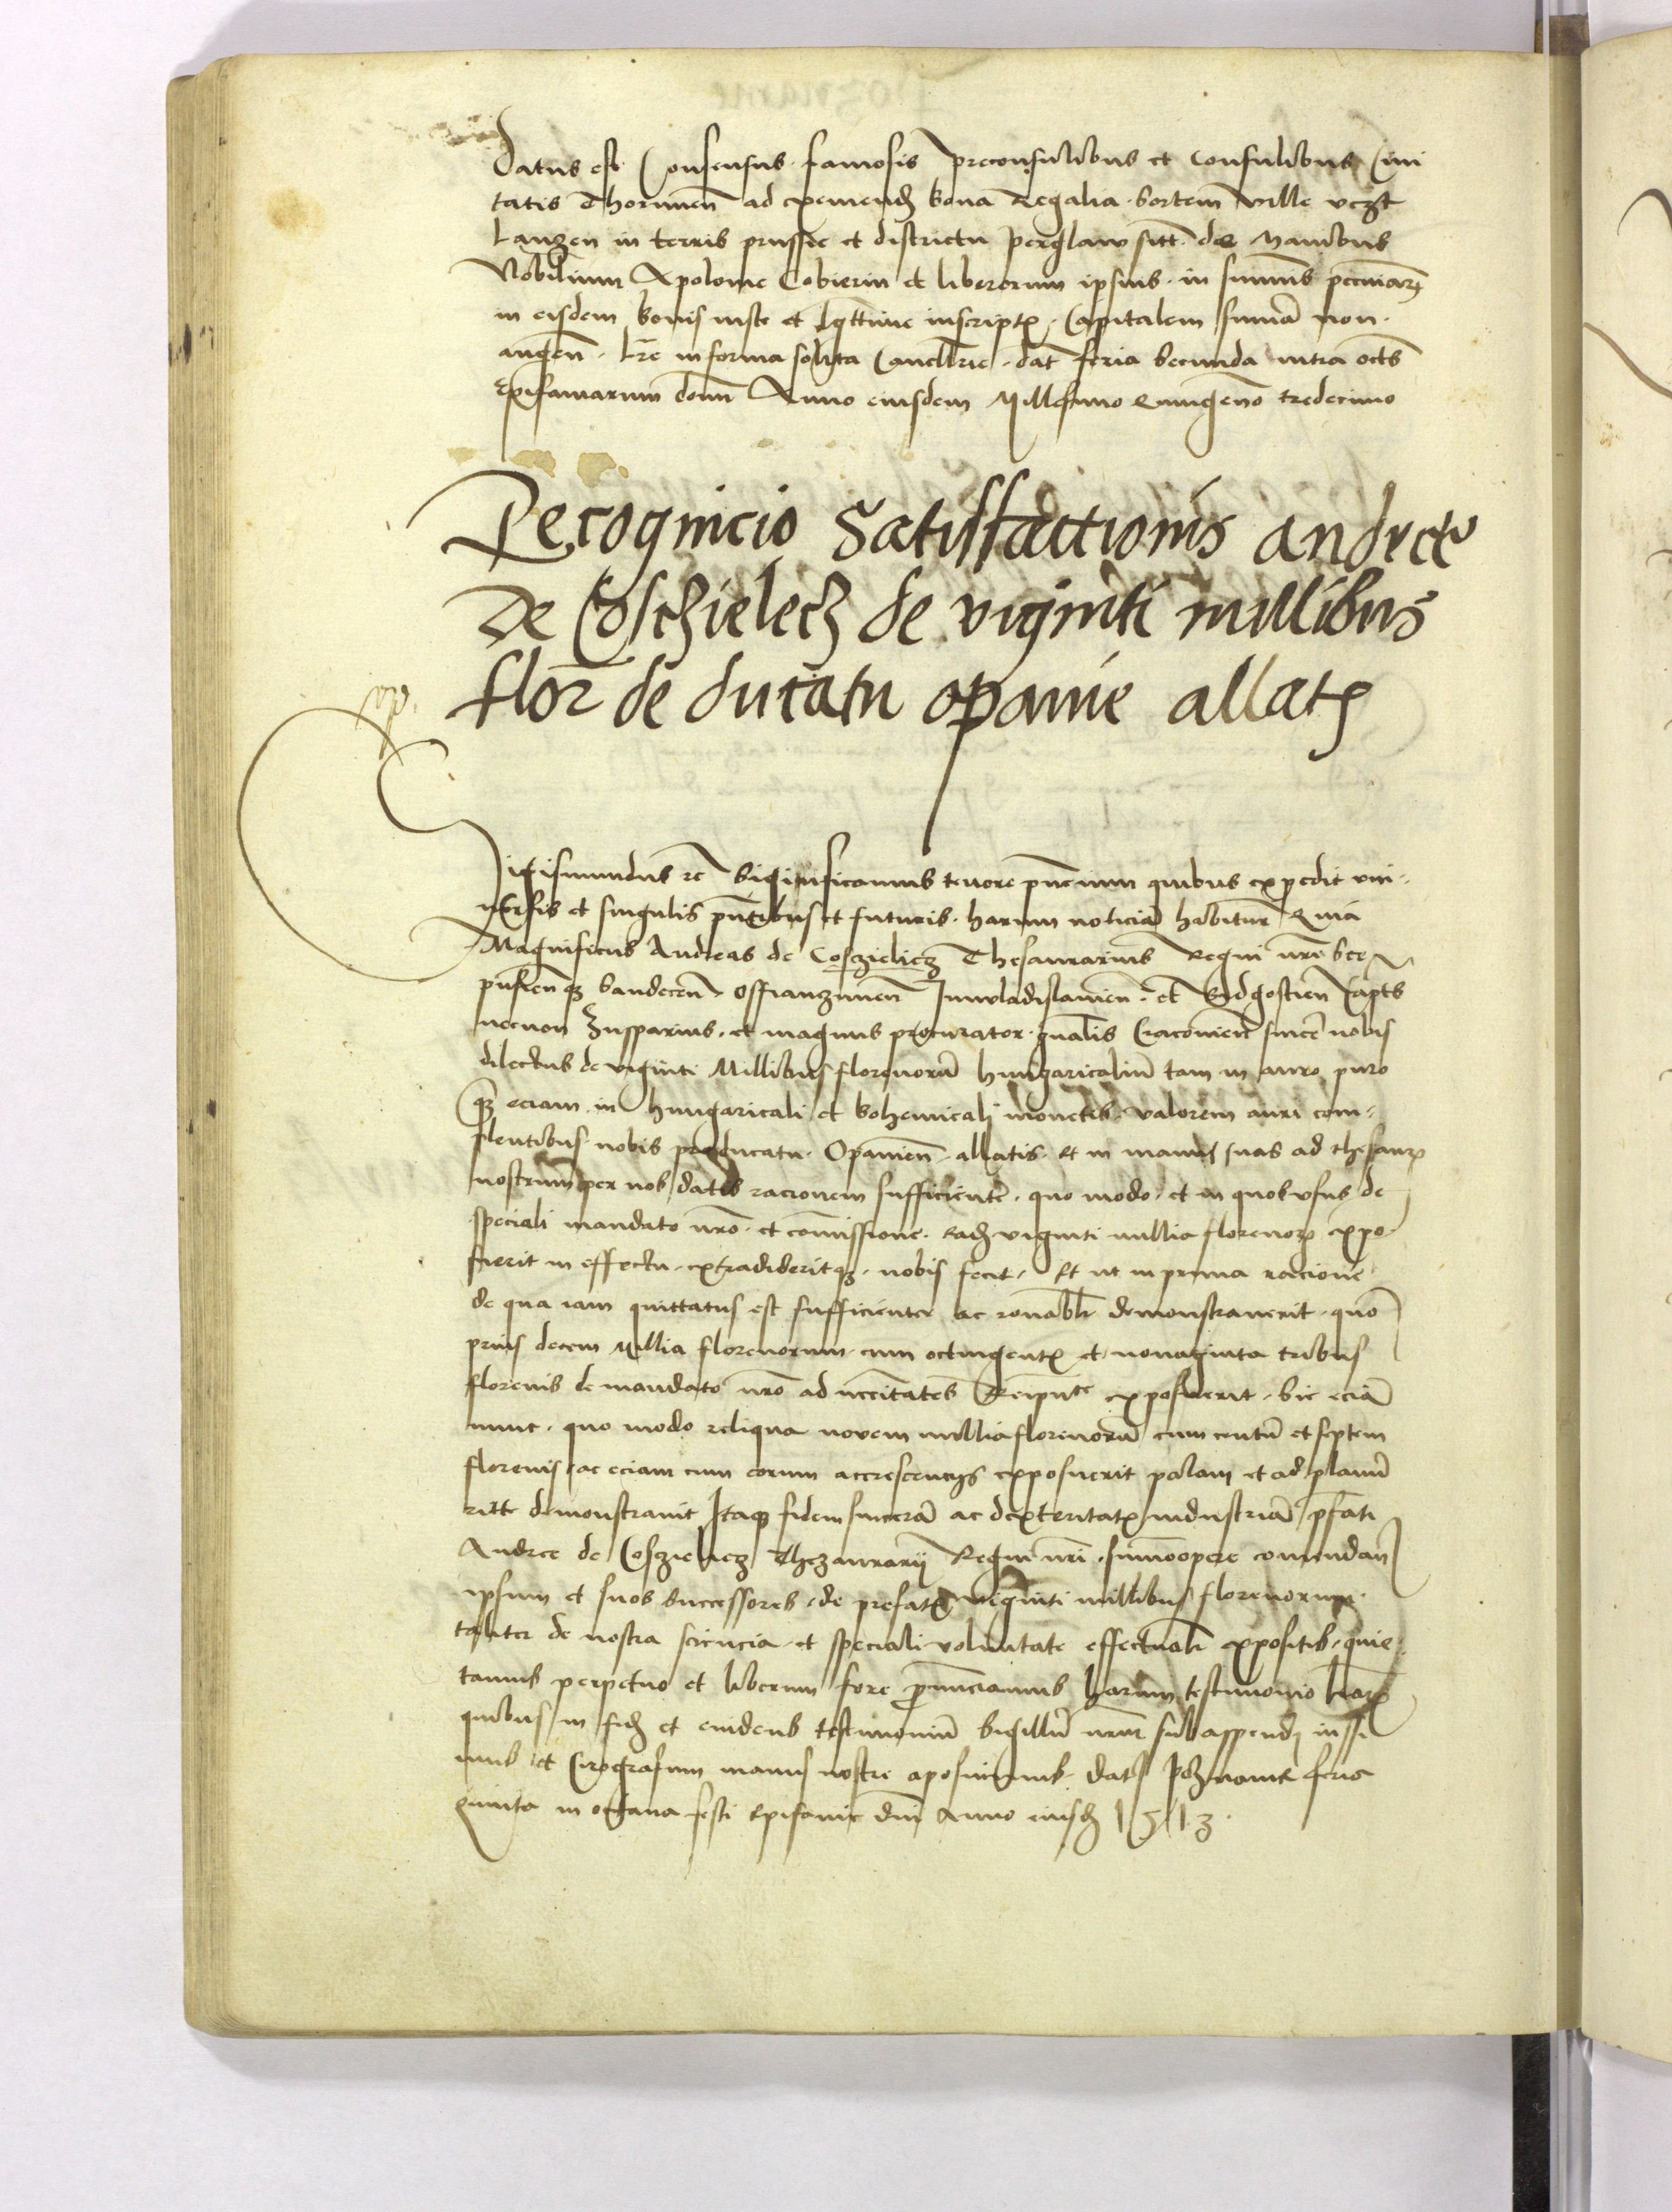 Datus est Consensus famosis preconsulibus et consulibus Civi
tatis Thorunen̄ ad exemendꝫ bona Regalia sortem ville
Langen in terris prussie et districtu sitt. de Manibus
Nobilium Apolonie et liberorum ipsius in summis pecuniarꝫ
in eisdem bonis iuste et inscriptꝫ Capitalem sum̄a non
augen̄. Lr̄e in forma solita Cancell̄rie. dat̄ feria secunda intra octs
Epifaniarum domī Anno eiusdem Millesimo Quingen̄o tredecimo
Recognicio Satisfactionis andree
De Cosczielecz de viginti millibus
flor̄ de ducatu opavie allatꝫ
Sigismundus rc̄ Significamus tenore pn̄cium quibus expedit uni-
versis et singulis pn̄tibus et futuris. harum noticiā habitur̄ Quia
Magnificus Andreas de Cosczieliecz Thesaurarius Regni nr̄i
Osswianczimen̄ Juniwladislavien̄. et Bidgostien̄ Capts
necnon Zupparius. et magnus procurator gn̄alis Cracovien̄ sincē nobis
dilectus de viginti Millibus florenorū hungaricaliū tam in auro puro
qꝫ eciam in hungaricali et bohemicali monetis valorem auri com-
plentibus nobis pro ducatu Opavien̄. allatis. Et in manus suas ad thesaurꝫ
nostrum per nos datis racionem sufficientē. quo modo et in quos usus de
speciali mandato nr̄o. et com̄issione. eadꝫ viginti millia florenorꝫ expo
suerit in effectu. extradideritqꝫ. nobis fecit. Et ut in prima racione
de qua iam quittatus est sufficienter ac demonstraverit. quo
prius decem Millia florenorum cum octingentꝫ et nonaginta tribus
florenis de mandato nr̄o ad Reipu̅ce exposuerit. sic eciā
nunc. quo modo reliqua novem millia florenorū cum centū et septem
florenis ac eciam cum eorum accrescenciis exposuerit palam et ad planū
ritte demonstravit Itaqꝫ fidem sincerā ac dexteritatꝫ industriā pfati
Andree de Cosczieliecz Thezaurarij Regni nr̄i. sum̄oopere comendan̄
ipsum et suos Successores. de prefatꝫ viginti millibus florenorum.
taliter de nostra sciencia. et speciali voluntate effectual̄i expositis. quie
tamus perpetuo et liberum fore pronunciamus harum testimonio l̄rarꝫ
quibus in fidꝫ et evidens testimoniū Sigillū nr̄m subappendi iussi
mus et Cirografum manus nostre aposuimus. dats Poznanie feria
Quinta in octava festi Epifanie dn̄i Anno eiusdꝫ 1513.